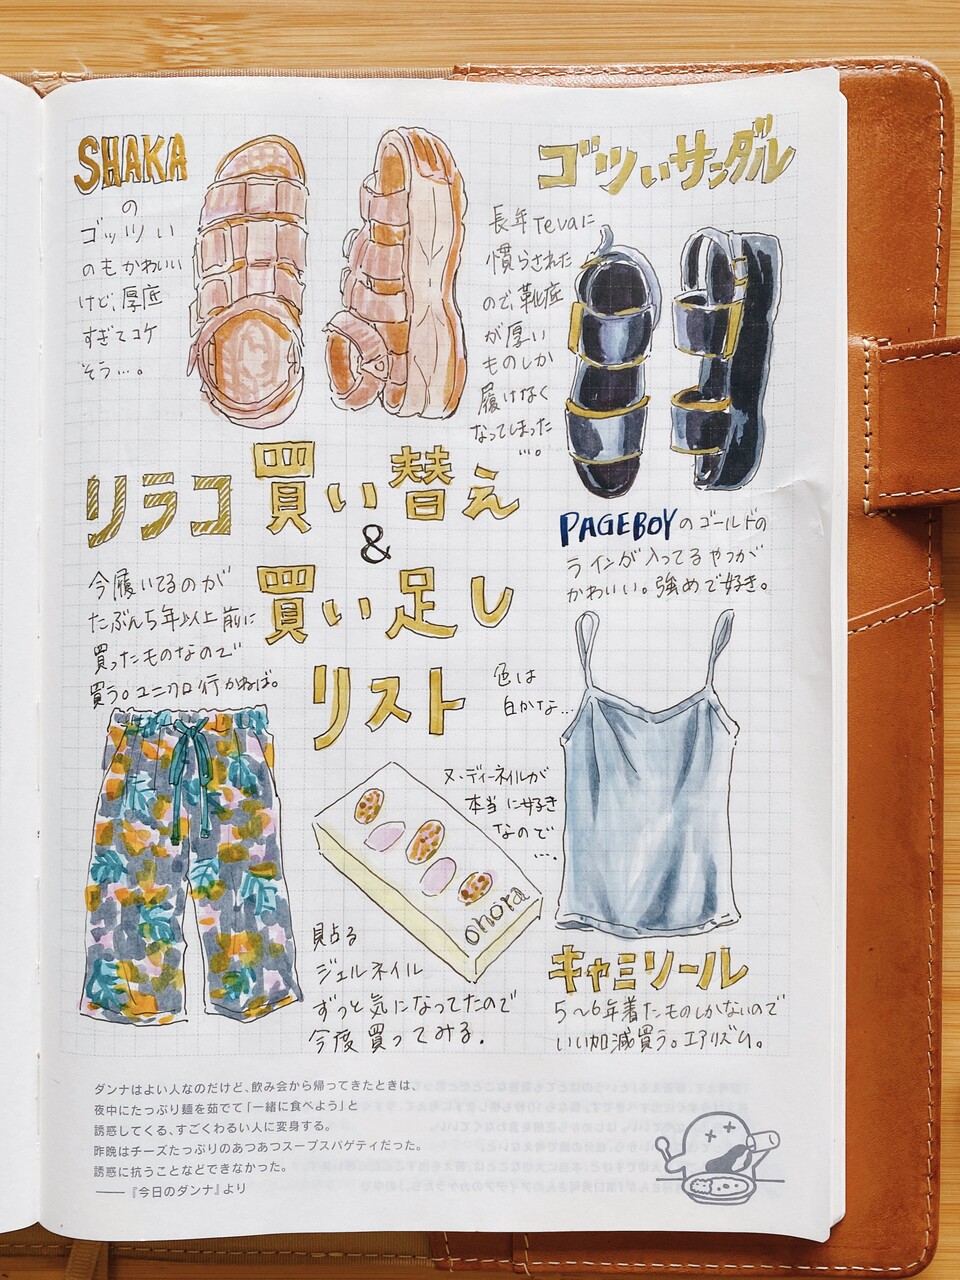 SHAKA
の
ゴッツい
のもかわいい
けど、厚底
すぎてコケ
そう…。
ゴツいサンダル
長年Tevaに
慣らされた
ので、靴底
が厚い
ものしか
履けなく
なってしまった
…。
PAGEBOYのゴールドの
ラインが入ってるやつが
かわいい。強めで好き。
買い替え
&
買い足し
リスト
リラコ
今履いてるのが
たぶん5年以上前に
買ったものなので
買う。ユニクロ行かねば。
色は
白かな…
ヌーディーネイルが
本当に好き
なので
…。
ohora
貼る
ジェルネイル
ずっと気になってたので
今度買ってみる.
キャミソール
5〜6年着たものしかないので
いい加減買う。エアリズム。
ダンナはよい人なのだけど、飲み会から帰ってきたときは、
夜中にたっぷり麺を茹でて「一緒に食べよう」と
誘惑してくる、すごくわるい人に変身する。
昨晩はチーズたっぷりのあつあつスープスパゲティだった。
誘惑に抗うことなどできなかった。
——『今日のダンナ』より